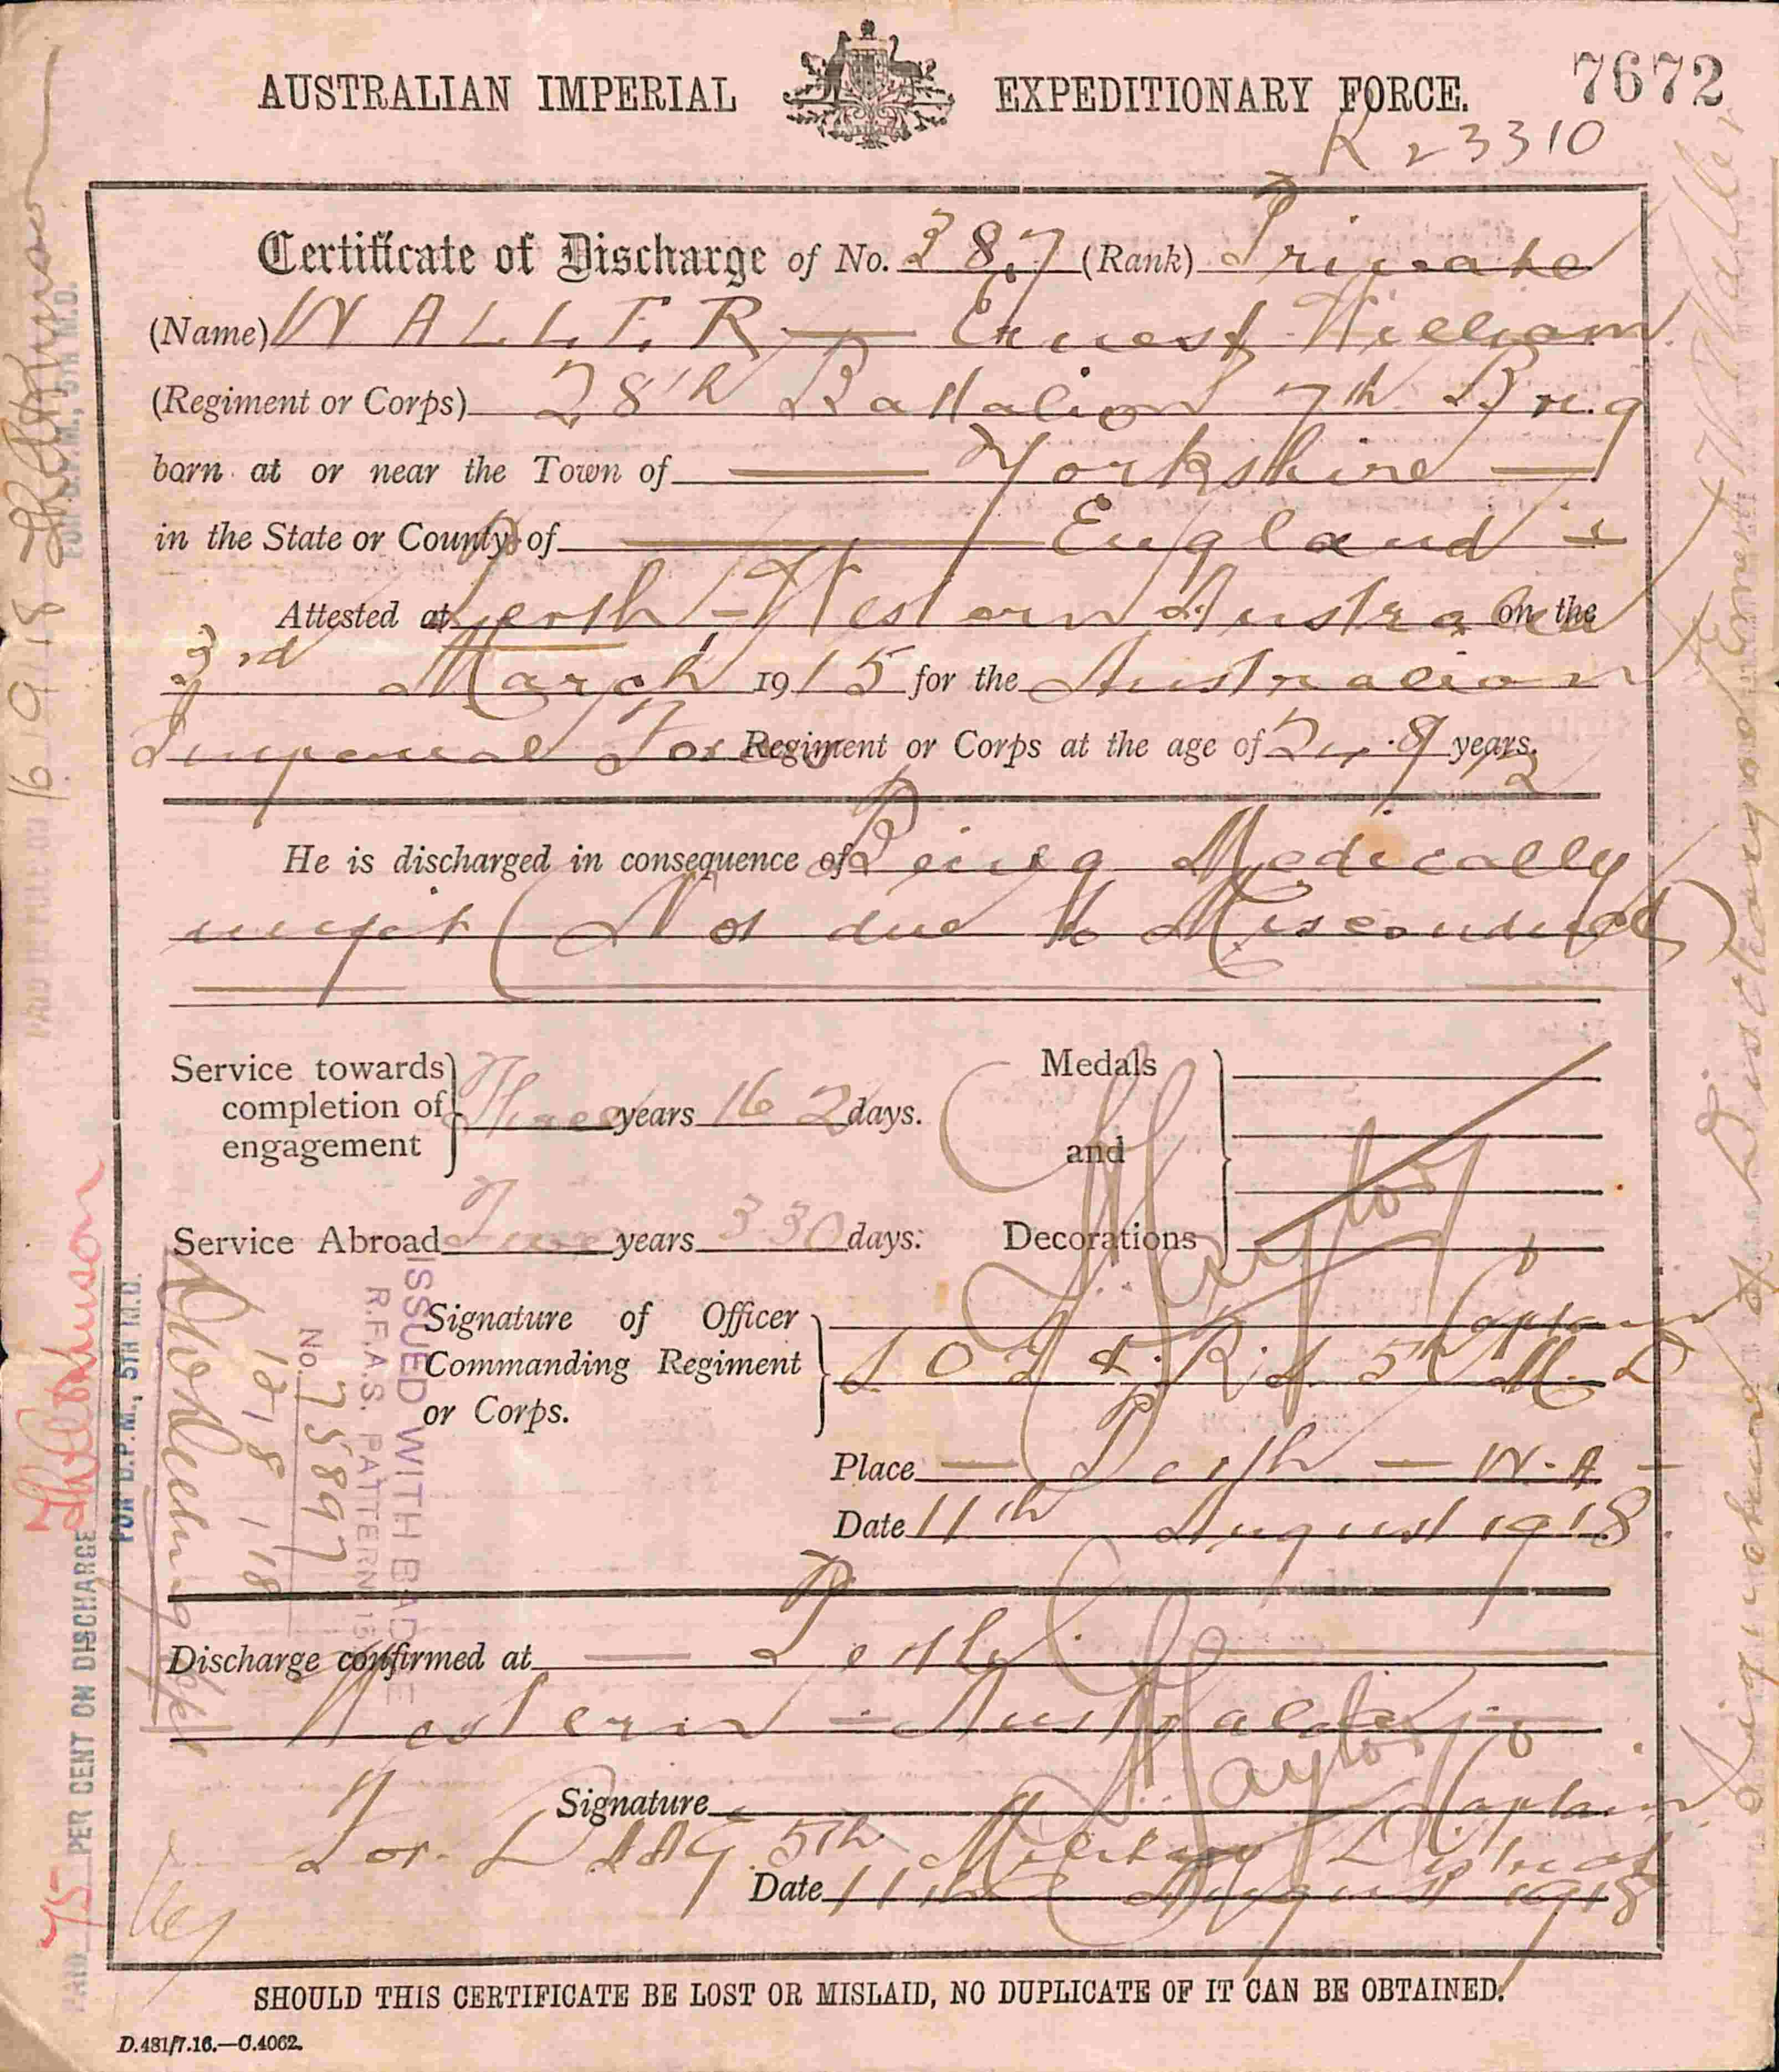 AUSTRALIAN IMPERIAL EXPEDITIONARY FORCE. 7672
R 23310
Certificate of Discharge of No. 387 (Rank) Private
(Name) WALLER — Ernest William
(Regiment or Corps) 28th Battalion 7th
born at or near the Town of — Yorkshire —
in the State or County of — England
Attested at Perth - Western Australia on the
3rd March 1915 for the Australian
Imperial Force Regiment or Corps at the age of years.
He is discharged in consequence of Being Medically
unfit (Not due to Misconduct)
Service towards completion of engagement Three years 162 days.
Service Abroad Two years 330 days.
Medals and Decorations
Signature of Officer Commanding Regiment or Corps. Taylor Captain
5th M.D
Place — Perth — W.A —
Date 11th August 1918.
Discharge confirmed at — Perth
Western - Australia
Signature Taylor Captain
For 5th Military District
Date 11th August 1918
SHOULD THIS CERTIFICATE BE LOST OR MISLAID, NO DUPLICATE OF IT CAN BE OBTAINED.
D.481/7.16.—C.4062.
ISSUED WITH BADGE
R.F.A.S. PATTERN
No. 75897
12/8/18
PAID 75 PER CENT ON DISCHARGE
FOR D.P.M., 5TH M.D.
16/9/18
FOR D.P.M., 5TH M.D.
Signature of Discharged Waller